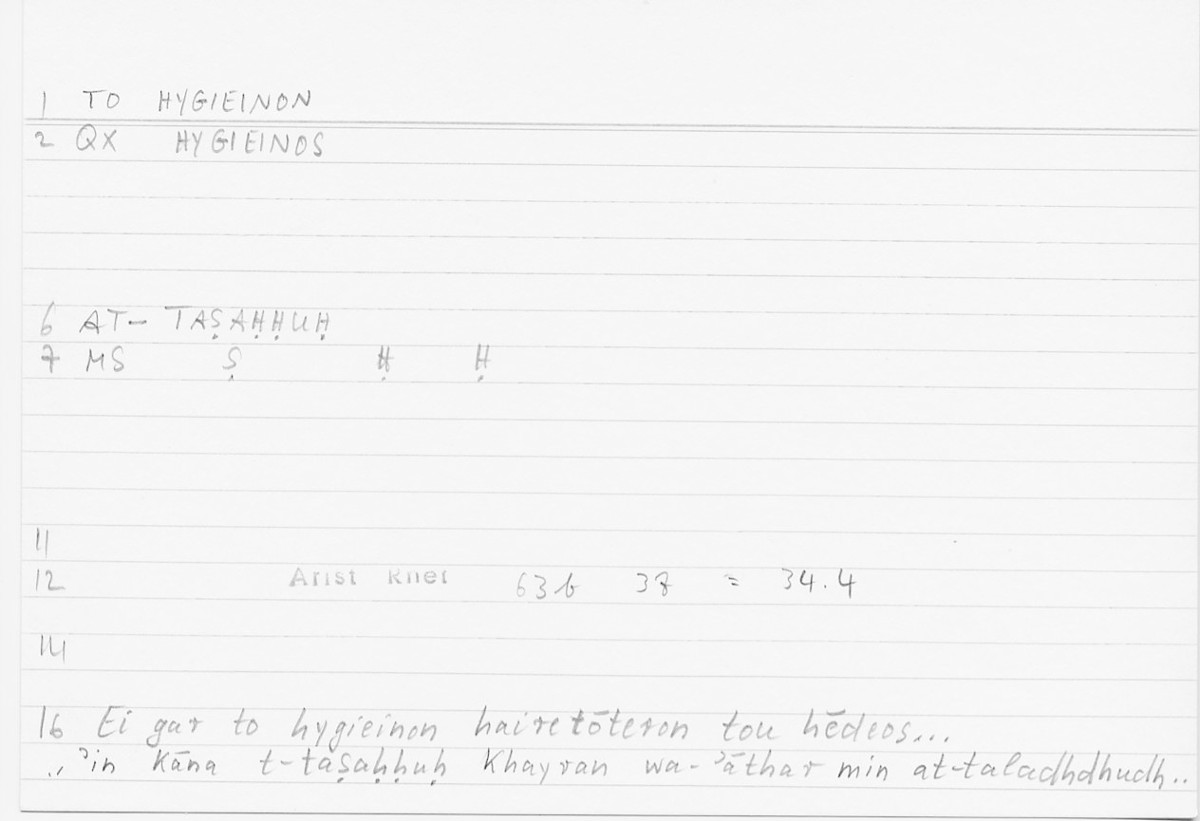 1 TO HYGIEINON
2 QX HYGIEINOS
6 AT- TAṢAḤḤUḤ
7 MS Ṣ Ḥ Ḥ
11
12 Arist Rhet 63b 38 = 34.4
14
16 Ei gar to hygieinon hairetōteron tou hēdeos...
.. ʾin kāna t-taṣaḥḥuḥ khayran wa-ʾāthar min at-taladhdhudh..